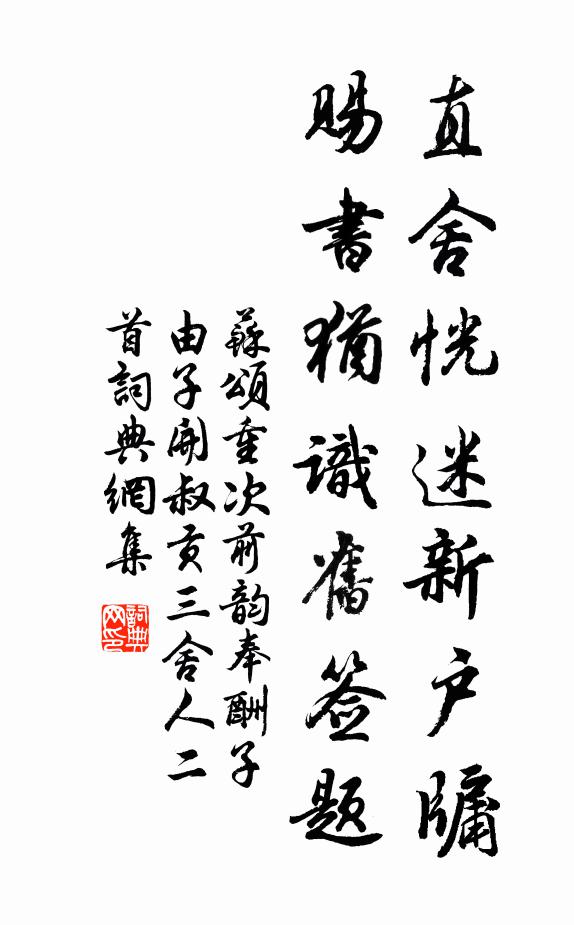 直舍恍迷新户牖
赐書猶識舊签题
蘇頌重次前韵奉酬子
由子開叔貢三舍人二
首詞典網集
詞典网印